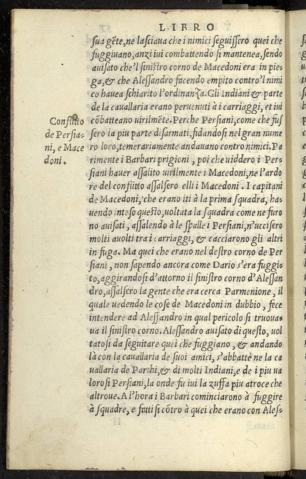 LIBRO
sua gẽte, ne lasciaua che i nimici seguissero quei che
fuggiuano, anzi iui combattendo si mantenea, sendo
auisato che'l sinistro corno de Macedoni era in pie-
ga, & che Alessandro facendo empito contro'l nimi
co hauea schiarito l'ordinanza. Gli indiani & parte
de la cauallaria erano peruenuti à i carriaggi, et iui
cõbatteano uirilmẽte. Perche Persiani, come che fus
sero la piu parte disarmati, fidandosi nel gran nume
ro loro, temerariamente andauano contro nimici. Pa
rimente i Barbari prigioni, poi che uiddero i Per
siani hauer assalito uirilmente i Macedoni, ne l'ardo
re del conflitto assalsero elli i Macedoni. I capitani
de Macedoni, che erano iti à la prima squadra, ha-
uendo inteso questo, uoltata la squadra come ne furo
no auisati, assalendo à le spalle i Persiani, n'uccisero
molti auolti tra i carriaggi, & cacciarono gli altri
in fuga. Ma quei che erano nel destro corno de Per
siani, non sapendo ancora come Dario s'era fuggi-
to, aggirandosi d'attorno il sinistro corno d'Alessan
dro, assalsero la gente che era cerca Parmenione, il
quale uedendo le cose de Macedoni in dubbio, fece
intendere ad Alessandro in qual pericolo si trouaua
ua il sinistro corno. Alessandro auisato di questo, uol
tatosi da seguitare quei che fuggiano, & andando
là con la cauallaria de suoi amici, s'abbattè ne la ca
uallaria de Parthi, & di molti Indiani, e de i piu ua
lorosi Persiani, la onde fu iui la zuffa piu atroce che
altroue. A l'hora i Barbari cominciarono à fuggire
à squadre, e tutti si cõtrò à quei che erano con Ales-
Conflitto
de Persia-
ni, e Mace
doni.